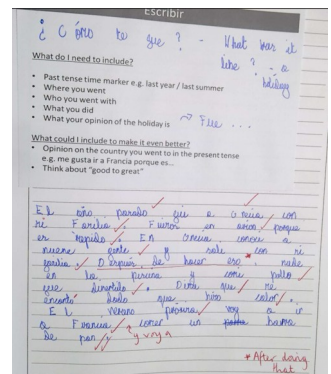 Escribir
¿Cómo te fue? - What was it
like? - a
holiday
What do I need to include?
• Past tense time marker e.g. last year / last summer
• Where you went
• Who you went with
• What you did
• What your opinion of the holiday is → Fue ...
What could I include to make it even better?
• Opinion on the country you went to in the present tense
e.g. me gusta ir a Francia porque es...
• Think about "good to great"
El año pasado fui a Grecia con
mi familia. Fuimos en avión porque
es rapido. En Grecia, conocí a
nueva gente y salí con mi
familia. Después de hacer eso*, nadé
en la piscina y comí pollo
fue divertido. Diría que me
encantó dado que hizo calor.
El verano próximo voy a ir
a Francia comer un barra
de pan. y voy a
* After doing
that